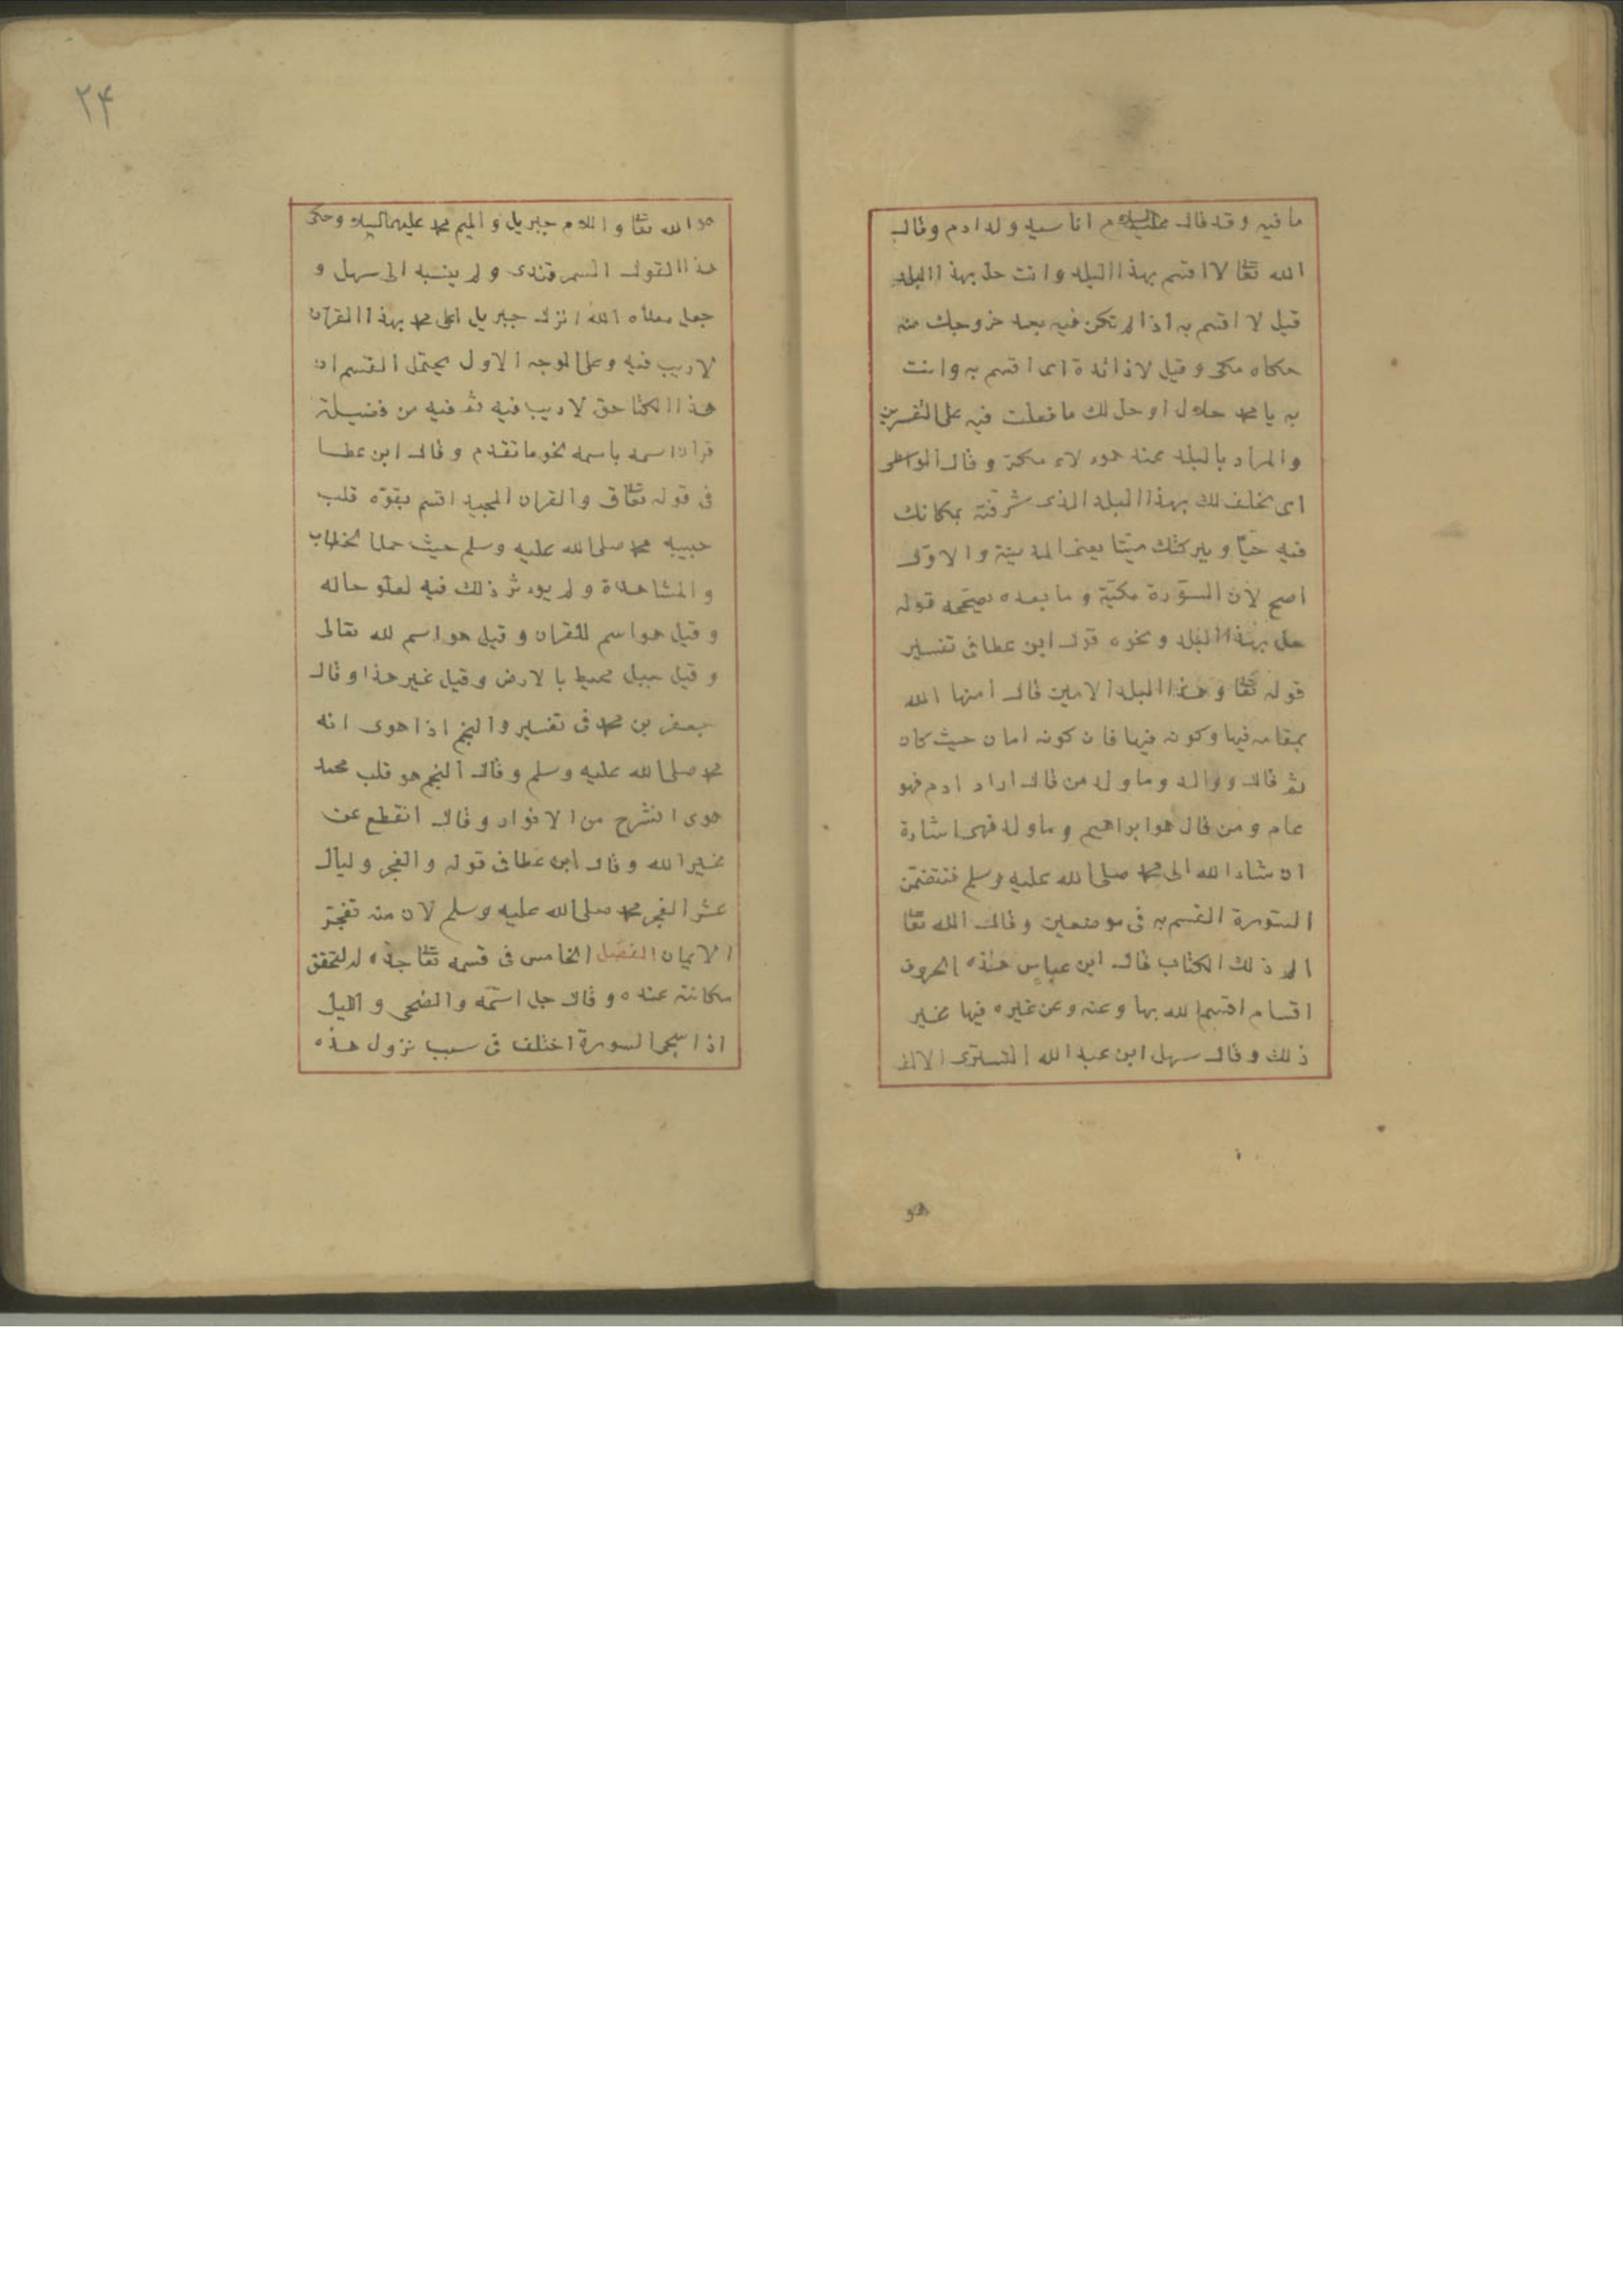 ما فيه وقد قال عليه السلام انا سيد ولد ادم وقال
الله تعا لا اقسم بهذا البلد وانت حل بهذا البلد
قيل لا اقسم به اذا لم تكن فيه بعد خروجك منه
حكاه مكى وقيل لا زائدة اى اقسم به وانت
به يا محمد حلال او حل لك ما فعلت فيه على التفسيرين
والمراد بالبلد عند هوءلاء مكة وقال الواسطى
اى نحلف لك بهذا البلد الذى شرفته بمكانك
فيه حيّا وببركتك ميتا يعنى المدينة والاوّل
اصح لان السّورة مكيّة وما بعده يصحّحه قوله
حل بهذا البلد ونحوه قول ابن عطا فى تفسير
قوله تعا وهذا البلد الامين قال امنها الله
بمقامه فيها وكونه فيها فان كونه امان حيث كان
ثم قال ووالد وما ولد من قال اراد ادم فهو
عام ومن قال هو ابراهيم وما ولد فهى اشارة
ان شاء الله الى محمد صلى الله عليه وسلم فتتضمن
السّورة القسم به فى موضعين وقال الله تعا
الم ذلك الكتاب قال ابن عباس هذه الحروف
اقسام اقسم الله بها وعنه وعن غيره فيها غير
ذلك وقال سهل ابن عبد الله التسترى الالف
هو
٢۴
هو الله تعا واللام جبريل والميم محمد عليهما السلام وحكى
هذا القول السمرقندى ولم ينسبه الى سهل و
جعل معناه الله انزل جبريل على محمد بهذا القران
لا ريب فيه وعلى الوجه الاول يحتمل القسم ان
هذا الكتا حق لا ريب فيه ثم فيه من فضيلة
قران اسمه باسمه نحو ما تقدم وقال ابن عطا
فى قوله تعا ق والقران المجيد اقسم بقوّه قلب
حبيبه محمد صلى الله عليه وسلم حيث حمل الخطاب
والمشاهدة ولم يوءثر ذلك فيه لعلو حاله
وقيل هو اسم للقران وقيل هو اسم لله تعالى
وقيل جبل محيط بالارض وقيل غير هذا وقال
جعفر بن محمد فى تفسير والنجم اذا هوى انه
محمد صلى الله عليه وسلم وقال النجم هو قلب محمد
هوى انشرح من الانوار وقال انقطع عن
غير الله وقال ابن عطا فى قوله والفجر وليال
عشر الفجر محمد صلى الله عليه وسلم لان منه تفجّر
الايمان الفصل الخامس فى قسمه تعا جدّه له لتحقق
مكانته عنده وقال جل اسمّه والضحى والليل
اذا سجى السورة اختلف فى سبب نزول هذه